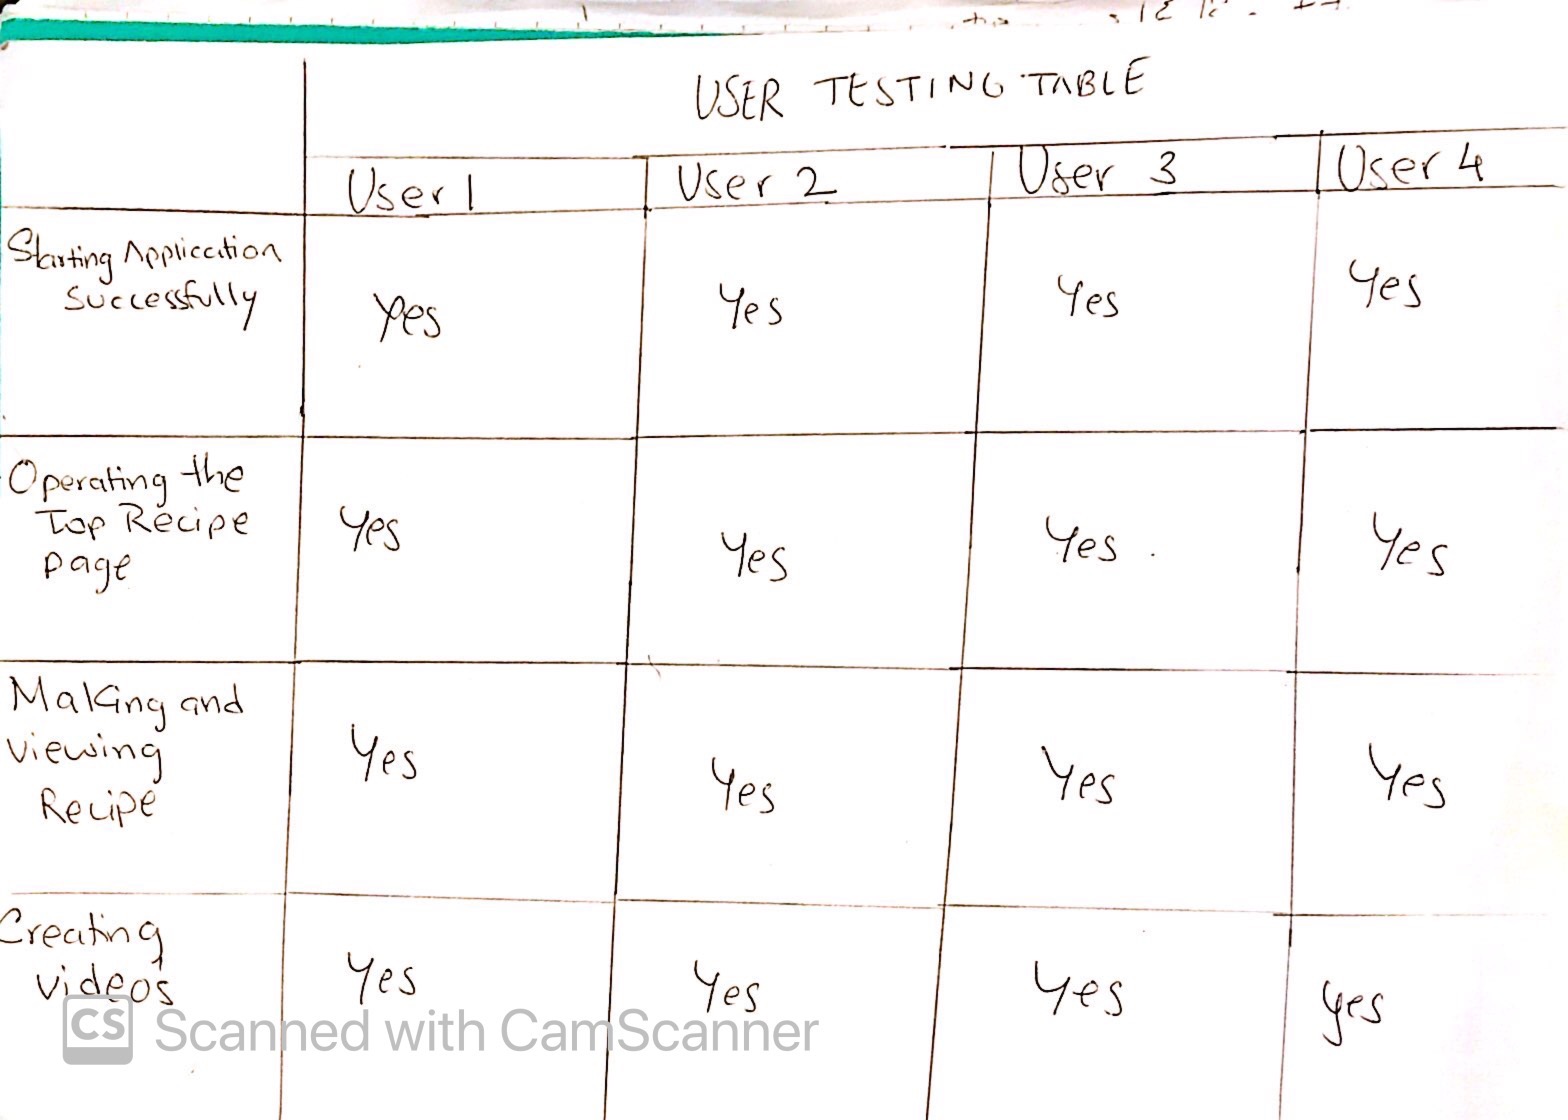 USER TESTING TABLE
User 1 User 2 User 3 User 4
Starting Application
Successfully
Yes Yes Yes Yes
Operating the
Top Recipe
page
Yes Yes Yes Yes
Making and
Viewing
Recipe
Yes Yes Yes Yes
Creating
videos
Yes Yes Yes Yes
CS Scanned with CamScanner